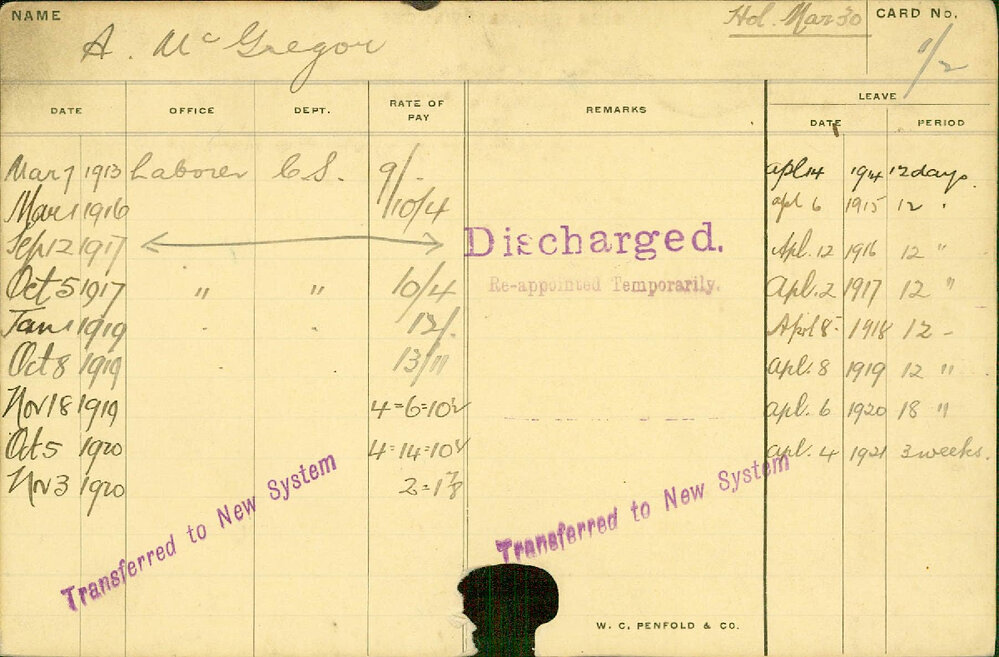 NAME A. McGregor Hol. Mar 30 CARD No. 1/2
DATE OFFICE DEPT. RATE OF PAY REMARKS LEAVE
DATE PERIOD
Mar 7 1913 Laborer C.S. 9/- Apl 14 1914 12 days.
Mar 1 1916 10/4 Apl 6 1915 12 "
Sep 12 1917 Discharged. Apl. 12 1916 12 "
Oct 5 1917 " " 10/4 Re-appointed Temporarily. Apl. 2 1917 12 "
Jan 1 1919 " " 12/- April 8 1918 12 "
Oct 8 1919 13/11 Apl. 8 1919 12 "
Nov 18 1919 4=6=10½ Apl. 6 1920 18 "
Oct 5 1920 4=14=10½ Apl. 4 1921 3 weeks.
Nov 3 1920
Transferred to New System
Transferred to New System
W. C. PENFOLD & CO.